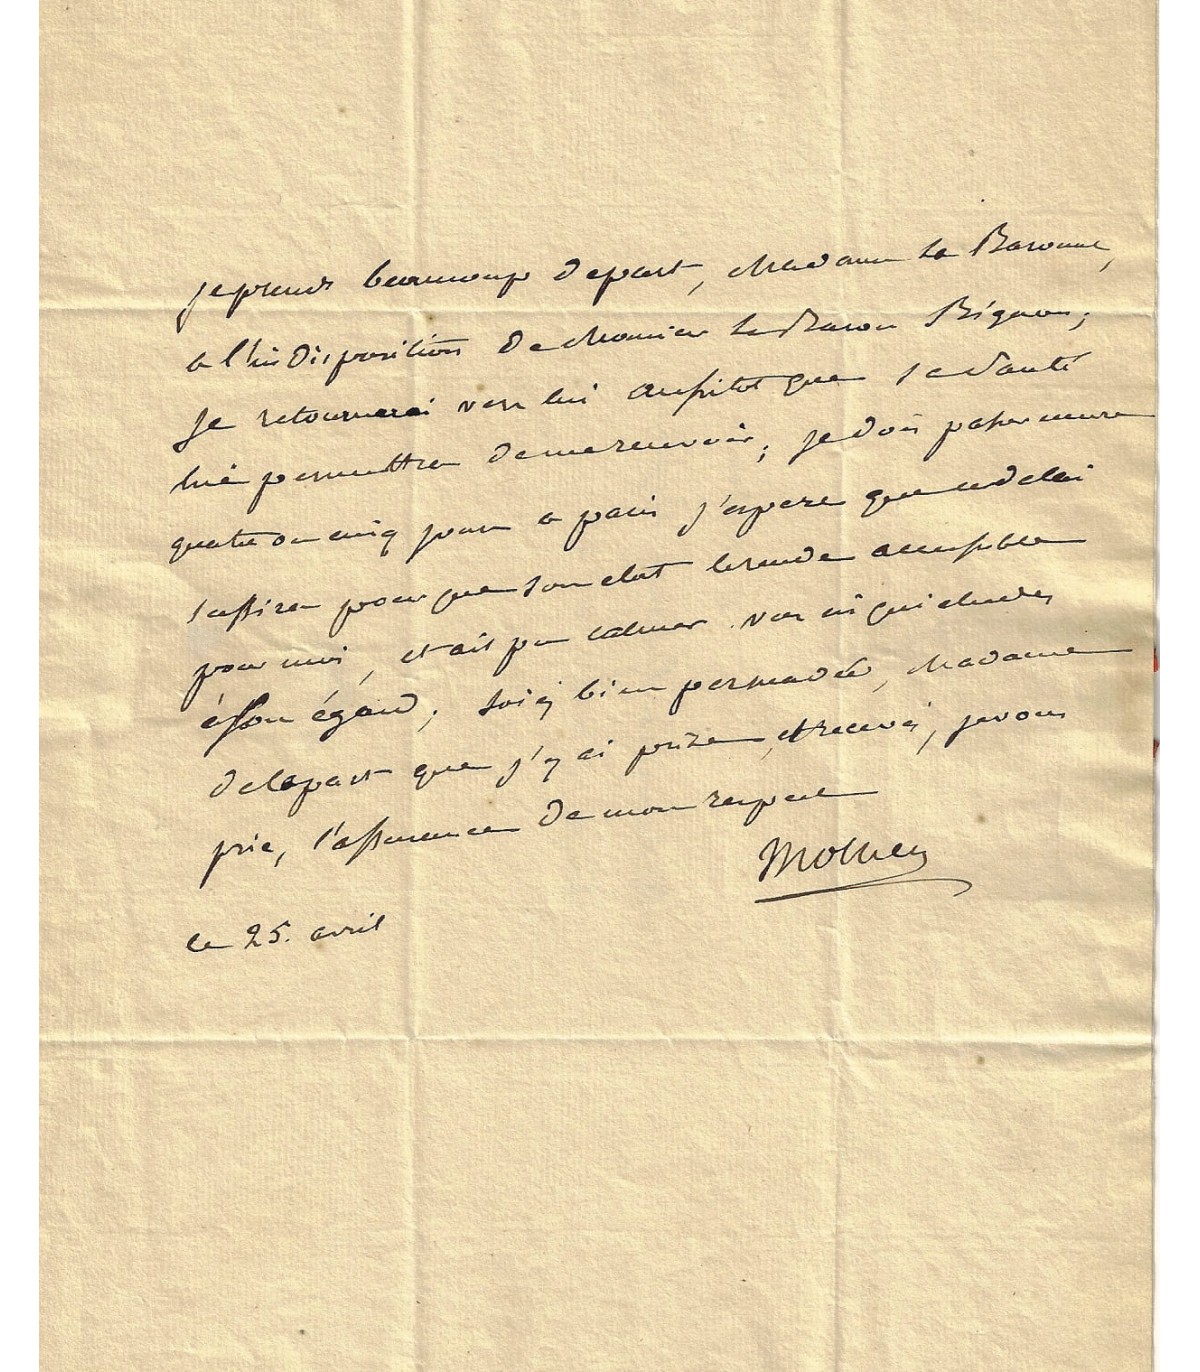 je prends beaucoup de part, Madame la Baronne,
a l'indisposition de Monsieur Le Baron Bignon;
Je retournerai vers lui aussitot que sa santé
lui permettra de me recevoir; je dois passer encore
quatre ou cinq jours a paris j'espere que ce delai
suffira pour que son etat le rende accessible
pour moi, et ait pu calmer vos inquietudes
à son égard; soiés bien persuadée, Madame
de la part que j'y ai prise, et recevés, je vous
prie, l'assurance de mon respect
Mollien
le 25. avril